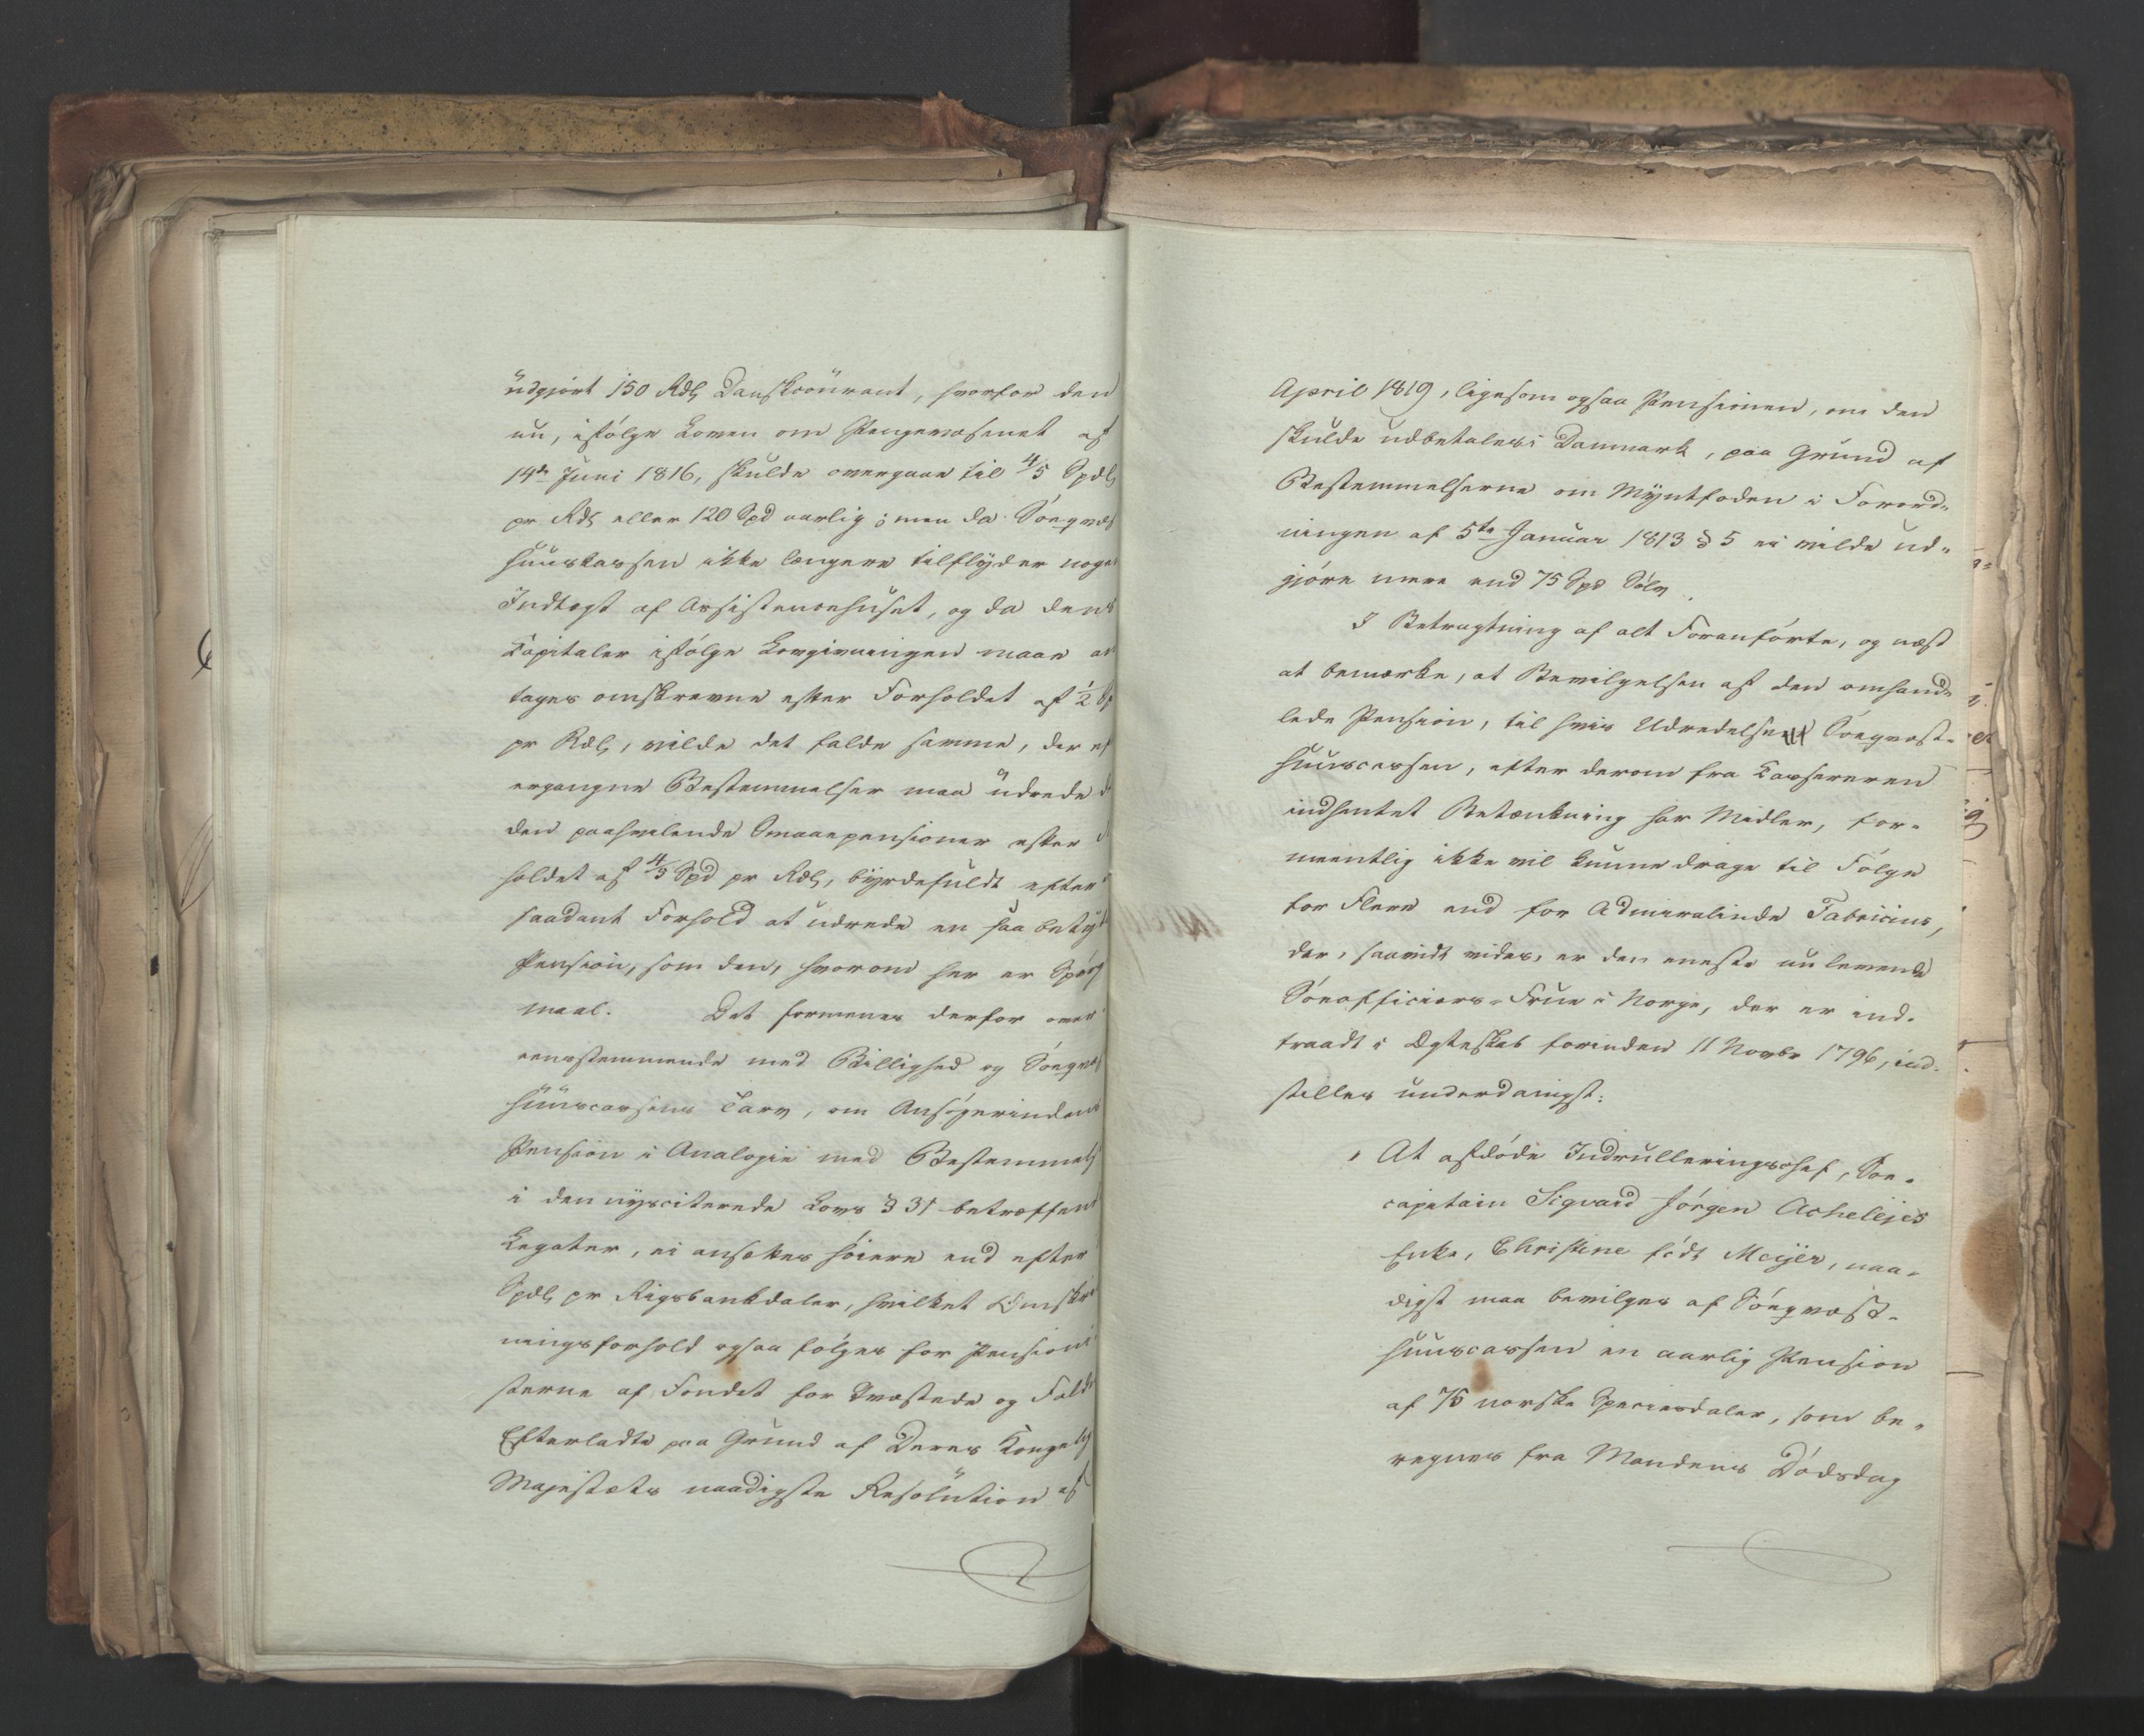 udgjort 150 Rdlr Danskcourant, hvorfor den
nu, ifølge Loven om Pengevæsenet af
14de Juni 1816, skulde overgaae til 4/5 Spdlr
pr Rdlr eller 120 Spd aarlig; men da Søeqvæst
huuskassen ikke længere tilflyder noget
Indtægt af Assistencehuset, og da dens
Capitaler ifølge Lovgivningen maae an
tages omskrevne efter Forholdet af 1/2 Sp
pr Rdlr, vilde det falde samme, der ef
ergangne Bestemmelser maa udrede d
den paahvilende Smaaepensioner efter
holdet af 4/5 Spd pr Rdlr, byrdefuldt efter
saadant Forhold at udrede en saa betyd
Pension, som den, hvorom her er Spørgs
maal. Det formenes derfor over
eensstemmende med Billighed og Søeqvæst
huuscassens Tarv, om Ansøgerindens
Pension i Analogie med Bestemmels
i den nysciterede Lovs § 31 betræffend
Legater, ei ansættes høiere end efter
Spdlr pr Rigsbankdaler, hvilket Omskriv
ningsforhold ogsaa følges for Pensioni
sterne af Fondet for Qvæstede og Faldn
Efterladte paa Grund af Deres Kongelig
Majestæts naadigste Resolution af
April 1819, ligesom ogsaa Pensionen, om den
skulde udbetales i Danmark, paa Grund af
Bestemmelserne om Myntfoden i Forord-
ningen af 5te Januar 1813 § 5 ei vilde ud-
gjøre mere end 75 Spd Sølv.
I Betragtning af alt Foranførte, og næst
at bemærke, at Bevilgelsen af den omhand-
lede Pension, til hvis Udredelse Søeqvæst-
huuscassen, efter derom fra Kassereren
indhentet Betænkning har Midler, for-
meentlig ikke vil kunne drage til Følge
for Flere end for Admiralinde Fabricius,
der, saavidt vides, er den eneste nu levende
Søeofficiers-Frue i Norge, der er ind-
traadt i Ægteskab forinden 11 Novbr 1796, ind-
stilles underdanigst:
At afdøde Indrulleringschef, Søe-
capitain Sigvard Jørgen Achelejes
Enke, Christine født Meijer, naa-
digst maa bevilges af Søeqvæst-
huuscassen en aarlig Pension
af 75 norske Speciesdaler, som be-
regnes fra Mandens Dødsdag